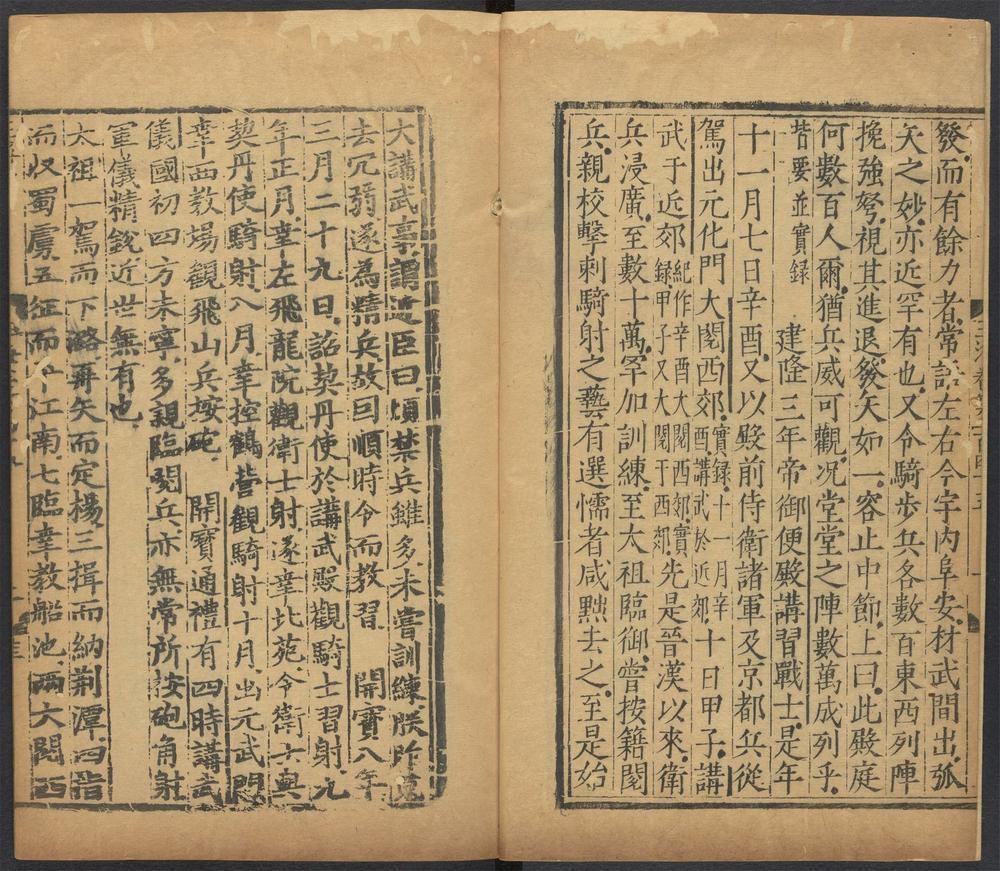 發而有餘力者常語左右今宇内阜安材武間出弧
矢之妙亦近罕有也又令騎步兵各數百東西列陣
挽強弩視其進退發矢如一容止中節上曰此殿庭
何數百人爾猶兵威可觀況堂堂之陣數萬成列乎
昔要並實錄 建隆三年帝御便殿講習戰士是年
十一月七日辛酉又以殿前侍衛諸軍及京都兵從
駕出元化門大閱西郊實錄十一月辛
酉講武於近郊十日甲子講
武于近郊紀作辛酉大閱西郊實
錄甲子又大閱于西郊先是晉漢以來衛
兵浸廣至數十萬罕加訓練至太祖臨御嘗按籍閱
兵親校擊刺騎射之藝有選懦者咸黜去之至是始
大講武事謂近臣曰頃禁兵雖多未嘗訓練朕昨
去冗弱遂為精兵故因順時令而教習 開寶八年
三月二十九日詔契丹使於講武殿觀騎士習射九
年正月幸左飛龍院觀衛士射遂幸北苑令衛士與
契丹使騎射八月幸控鶴營觀騎射十月出元武門
幸西教場觀飛山兵按砲 開寶通禮有四時講武
儀國初四方未寧多親臨閱兵亦無常所按砲角射
軍儀精銳近世無有也
太祖一駕而下潞再矢而定楊三揖而納荆潭四指
而収蜀虜五征而平江南七臨幸教船池兩大閱西